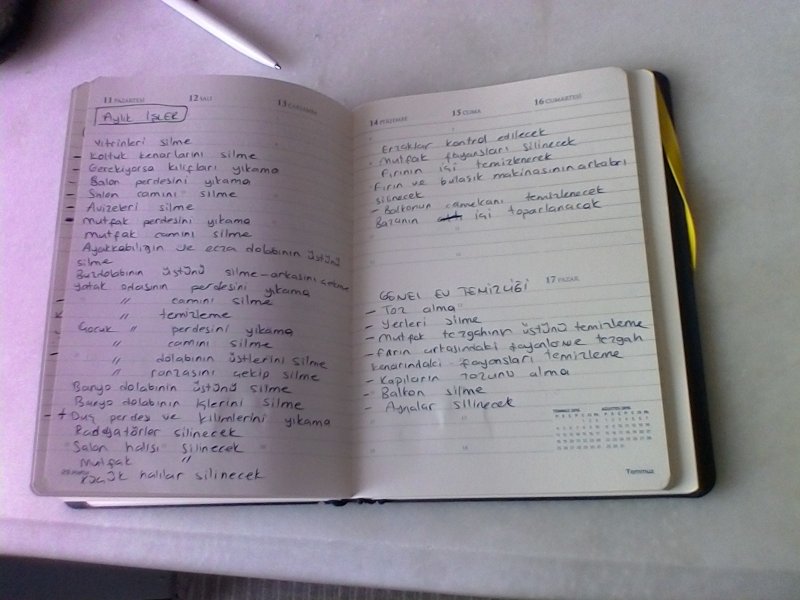 11 PAZARTESİ 12 SALI 13 ÇARŞAMBA
AYLIK İŞLER
Vitrinleri silme
Koltuk kenarlarını silme
- Gerekiyorsa kılıfları yıkama
- Salon perdesini yıkama
- Salon camını silme
- Avizeleri silme
mutfak perdesini yıkama
mutfak camını silme
Ayakkabılığın ve ecza dolabının üstünü
silme
Buzdolabının üstünü silme - arkasını çekme
Yatak odasının perdesini yıkama
" camını silme
" temizleme
Çocuk " perdesini yıkama
" camını silme
" dolabının üstlerini silme
" ranzasını çekip silme
Banyo dolabının üstünü silme
Banyo dolabının içlerini silme
- + Duş perdesi ve kilimlerini yıkama
Radyatörler silinecek
Salon halısı silinecek
mutfak "
küçük halılar silinecek
14 PERŞEMBE 15 CUMA 16 CUMARTESİ
Erzaklar kontrol edilecek
mutfak fayansları silinecek
Fırının içi temizlenecek
Fırın ve bulaşık makinasının arkaları
silinecek
- Balkonun camekanı temizlenecek
Bazanın içi toparlanacak
17 PAZAR
GENEL EV TEMİZLİĞİ
- Toz alma
- Yerleri silme
- mutfak tezgahının üstünü temizleme
- fırın arkasındaki fayanlar ve tezgah
kenarındaki fayansları temizleme
- Kapıların tozunu alma
- Balkon silme
- Aynalar silinecek
Temmuz